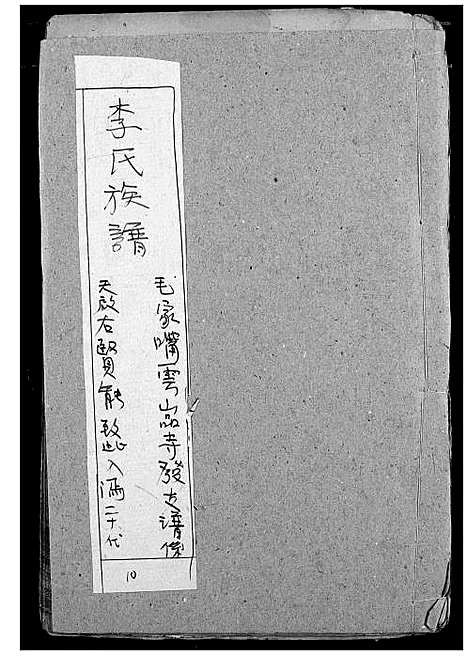 李氏族譜
毛家嘴雲嵓寺發支譜係
天啟右賢能致入滿二十代
10